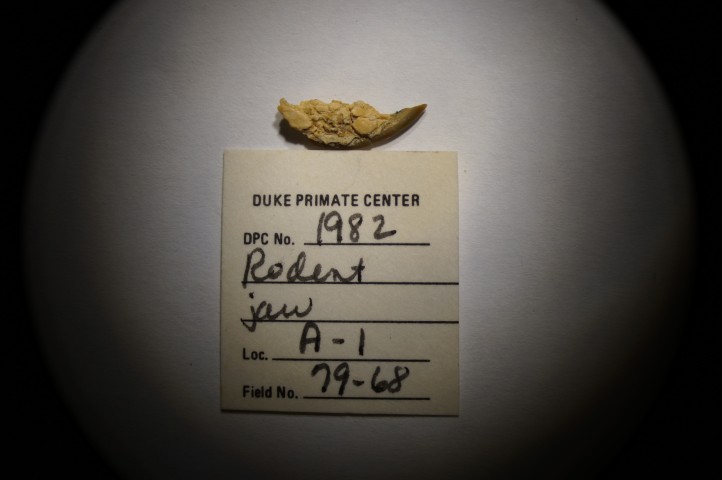 DUKE PRIMATE CENTER
DPC No. 1982
Rodent
jaw
Loc. A-1
Field No. 79-68